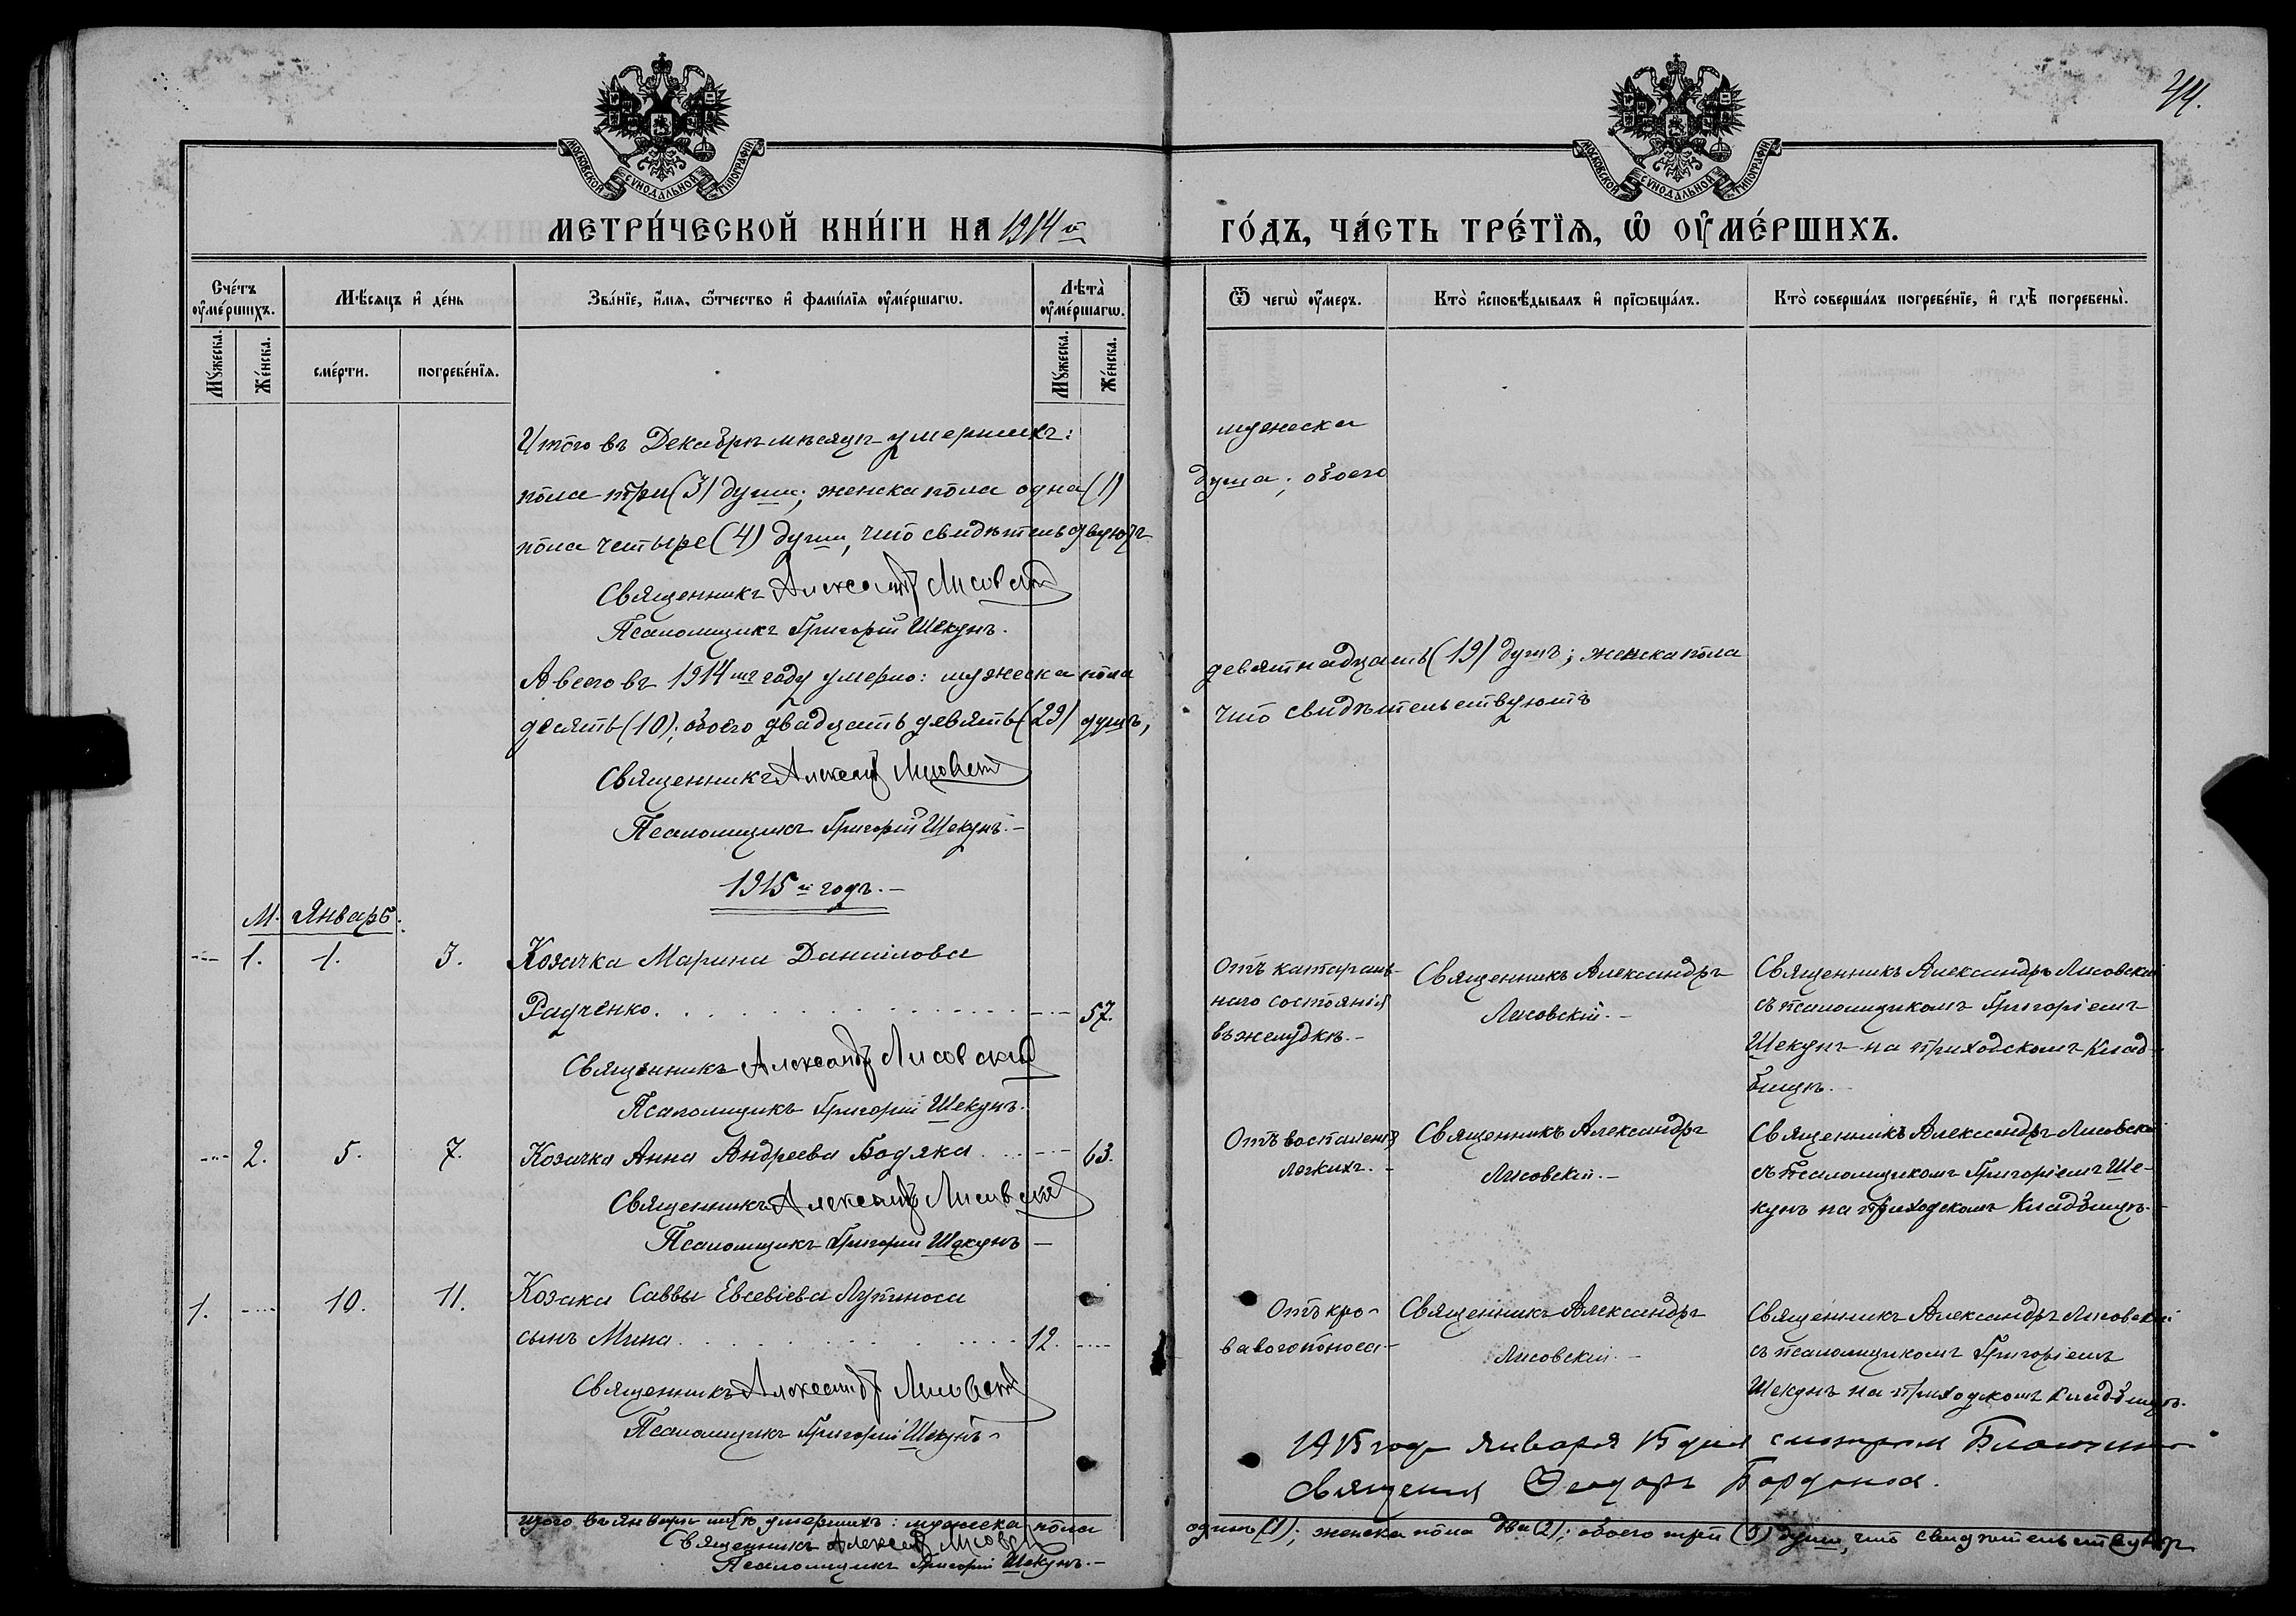 44.
МОСКОВСКОЙ СУНОДАЛЬНОЙ ТИПОГРАФІИ
МОСКОВСКОЙ СУНОДАЛЬНОЙ ТИПОГРАФІИ
МЕТРИ́ЧЕСКОЙ КНИ́ГИ НА 1914й ГО́ДЪ, ЧА́СТЬ ТРЕ́ТЇѦ, Ѡ҆ ОУ҆МЕ́РШИХЪ.
Сче́тъ оу҆ме́ршихъ.
Мꙋ́жеска.
Же́нска.
Мѣ́сѧцъ и҆ де́нь
сме́рти.
погребе́нїѧ.
Зва́нїе, и҆́мѧ, ѻ҆́тчество и҆ фамѝлїѧ оу҆ме́ршагѡ.
Лѣ́та̀ оу҆ме́ршагѡ.
Мꙋ́жеска.
Же́нска.
Ѿ чегѡ̀ оу҆́меръ.
Кто̀ и҆сповѣ́дывалъ и҆ прїѡбща́лъ.
Кто̀ соверша́лъ погребе́нїе, и҆ гдѣ̀ погребены̀.
Итого въ Декабрѣ мѣсяцѣ умершихъ: мужеска
пола три (3) души; женска пола одна (1) душа; обоего
пола четыре (4) души, что свидѣтельствуютъ
Священникъ Александръ Лисовскій
Псаломщикъ Григорій Шекунъ.
А всего въ 1914мъ году умерло: мужеска пола девятнадцать (19) душъ; женска пола
десять (10); обоего двадцать девять (29) душъ, что свидѣтельствуютъ
Священникъ Александръ Лисовскій
Псаломщикъ Григорій Шекунъ.–
1915й годъ.–
М. Январь.
--- 1. 1. 3. Козачка Марина Даніилова
Радченко. --- 57.
Отъ катараль-
наго состоянія
въ желудкѣ.–
Священникъ Александръ
Лисовскій.–
Священникъ Александръ Лисовскій
съ псаломщикомъ Григоріемъ
Шекунъ на приходскомъ клад-
бищѣ.
Священникъ Александръ Лисовскій
Псаломщикъ Григорій Шекунъ.
--- 2. 5. 7. Козачка Анна Андреева Бодяка --- 63.
Отъ воспаленія
легкихъ.–
Священникъ Александръ
Лисовскій.–
Священникъ Александръ Лисовскій
съ псаломщикомъ Григоріемъ Ше-
кунъ на приходскомъ кладбищѣ.–
Священникъ Александръ Лисовскій
Псаломщикъ Григорій Шекунъ –
1. --- 10. 11. Козака Саввы Евсевіева Лупиноса
сынъ Мина. 12. ---
Отъ кро-
ваваго поноса–
Священникъ Александръ
Лисовскій.–
Священникъ Александръ Лисовскій
съ псаломщикомъ Григоріемъ
Шекунъ на приходскомъ кладбищѣ.
Священникъ Александръ Лисовскій
Псаломщикъ Григорій Шекунъ–
1915 года Января 15 дня
Священникъ Ѳеодоръ
Итого въ январѣ м-цѣ умершихъ: мужеска пола одинъ (1); женска пола два (2); обоего три (3) души, что свидѣтельствуютъ
Священникъ Александръ Лисовскій
Псаломщикъ Григорій Шекунъ.–